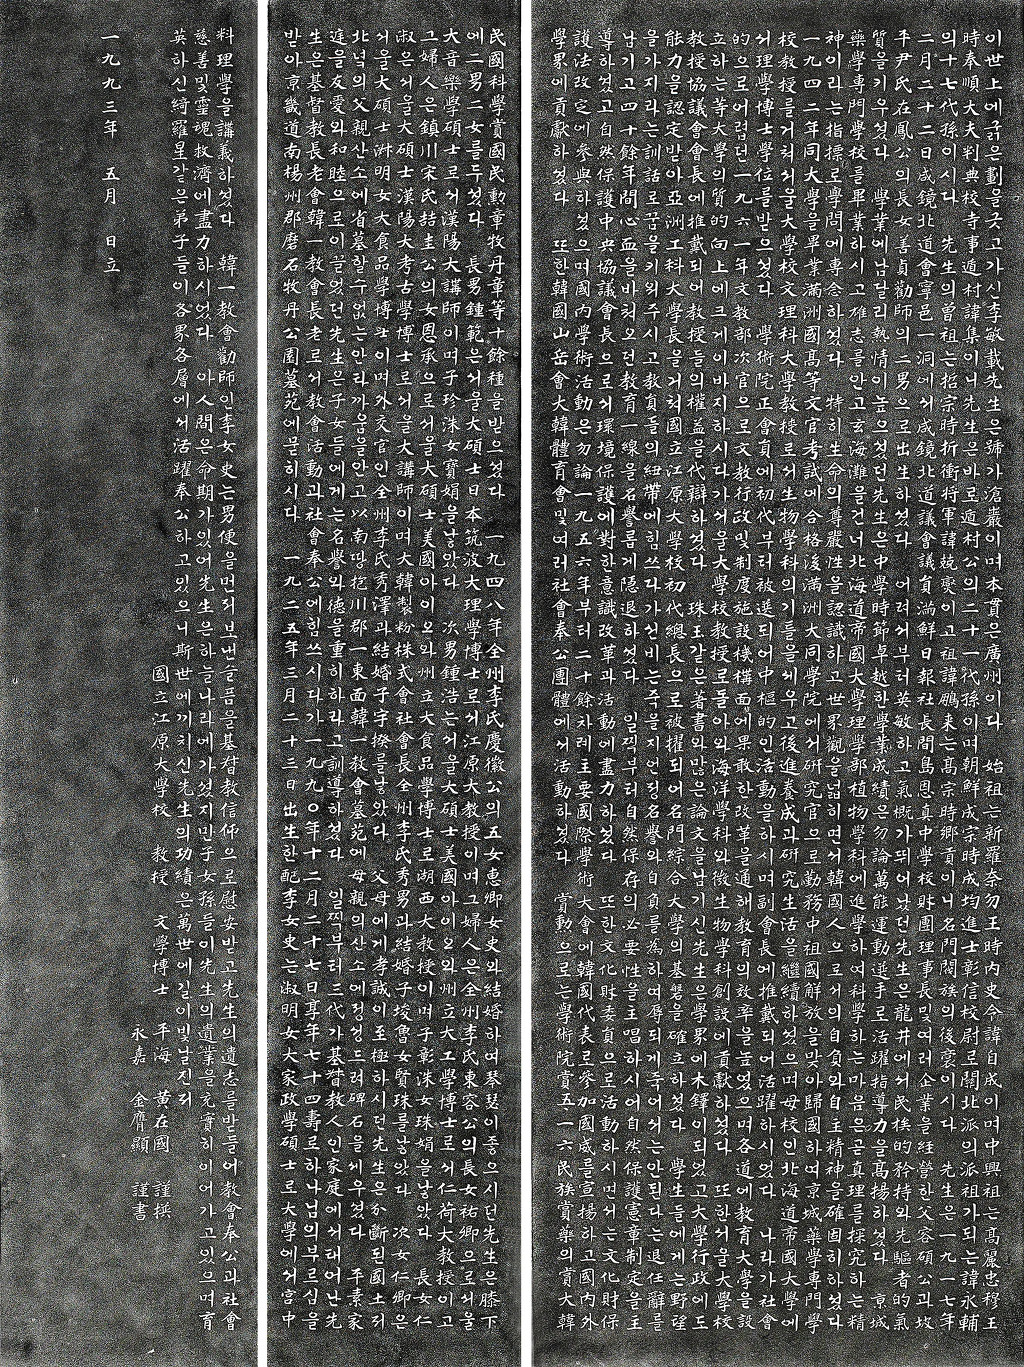 이世上에굵은劃을긋고가신李敏載先生은號가滄巖이며本貫은廣州이다 始祖는新羅奈勿王時內史令諱自成이며中興祖는高麗忠穆王
時奉順大夫判典校寺事遁村諱集이니先生은바로遁村公의二十一代孫이며朝鮮成宗時成均進士彰信校尉로關北派의派祖가되는諱永輔
의十七代孫이시다 先生의曾祖는招宗時折衝將軍諱兢燮이고祖諱鵬來는高宗時鄕貢이니名門閥族의後裔이시다 先生은一九一七年
二月二十二日咸鏡北道會寧邑一洞에서咸鏡北道議會議員滿鮮日報社長間島恩真中學校財團理事長및여러企業을經營한父容碩公과坡
平尹氏在鳳公의長女善貞勸師의二男으로出生하셨다 어려서부터英敏하고氣槪가뛰어났던先生은龍井에서民族的矜持와先驅者的氣
質을기우셨다 學業에남달리熱情이높으셨던先生은中學時節卓越한學業成績은勿論萬能運動選手로活躍指導力을高揚하셨다 京城
藥學專門學校를畢業하시고雄志를안고玄海灘을건너北海道帝國大學理學部植物學科에進學하여科學하는마음은곧真理를探究하는精
神이라는指標로學問에專念하셨다 特히生命의尊嚴性을認識하고世界觀을넓히면서韓國人으로서의自負와自主精神을確固히하셨다
一九四二年同大學을畢業滿洲國高等文官考試에合格後滿洲大同學院에서研究官으로勤務中祖國解放을맞아歸國하여京城藥學專門學
校敎授를거쳐서울大學校文理科大學敎授로서生物學科의기틀을세우고後進養成과研究生活을繼續하셨으며母校인北海道帝國大學에
서理學博士學位를받으셨다 學術院正會員에初代부터被選되어中樞的인活動을하시며副會長에推戴되어活躍하시었다 나라가社會
的으로어렵던一九六一年文敎部次官으로文敎行政및制度施設機構面에果敢한改革을通해敎育의效率을높였으며各道에敎育大學을設
立하는等大學의質的向上에크게이바지하시다가서울大學校敎授로돌아와海洋學科와微生物學科創設에貢獻하셨다 또한서울大學校
敎授協議會會長에推戴되어敎授들의權益을代辯하셨다 珠玉같은著書와많은論文을남기신先生은學界에木鐸이되었고大學行政에도
能力을認定받아亞洲工科大學長을거쳐國立江原大學校初代總長으로被擢되어名門綜合大學의基磐을確호하셨다 學生들에게는野望
을가지라는訓話로꿈을기워주시고敎員들의紐帶에힘쓰다가선비는죽을지언정名譽와自負를為하여辱되게죽어서는안된다는退任辭를
남기고四十餘年間心血을바쳐오던敎育一線을名譽롭게隱退하셨다 일찍부터自然保存의必要性을主唱하시어自然保護憲章制定을主
導하셨고自然保護中央協議會長으로서環境保護에對한意識改革과活動에盡力하셨다 또한文化財委員으로活動하시면서는文化財保
護法改定에參與하셨으며國內學術活動은勿論一九五六年부터二十餘차례主要國際學術大會에韓國代表로參加國威를宣揚하고國內外
學界에貢獻하셨다 또한韓國山岳會大韓體育會및여러社會奉公團體에서活動하셨다 賞勳으로는學術院賞五一六民族賞藥의賞大韓
民國科學賞國民勳章牧丹章等十餘種을받으셨다 一九四八年全州李氏慶徽公의五女惠卿女史와結婚하여琴瑟이좋으시던先生은膝下
에二男二女를두셨다 長男鍾範은서울大碩士日本筑波大理學博士로서江原大敎授이며그婦人은全州李氏東容公의長女祐卿으로서울
大音樂學碩士로서漢陽大講師이며子珍洙女寶娟을낳았다 次男鍾浩는서울大碩士美國아이오와州立大工學博士로서仁荷大敎授이고
그婦人은鎭川宋氏喆圭公의女恩承으로서울大碩士美國아이오와州立大食品學博士로湖西大敎授이며子彰洙女珠娟을낳았다 長女仁
淑은서울大碩士漢陽大考古學博士로서울大講師이며大韓製粉株式會社會長全州李氏秀男과結婚子埈魯女賢珠를낳았다 次女仁卿은
서울大碩士淑明女大食品學博士이며外交官인全州李氏秀澤과結婚子宇揆를낳았다 父母에게孝誠이至極하시던先生은分斷된國土저
北녘의父親산소에省墓할수없는안타까움을안고以南땅抱川郡一東面韓一敎會墓苑에母親의산소에정성드려碑石을세우셨다 平素家
庭을友愛와和睦으로이끌었던先生은子女들에게는名譽와德을重히하라고訓導하셨다 일찍부터三代가基督敎人인家庭에서태어난先
生은基督敎長老會韓一敎會長老로서敎會活動과社會奉公에힘쓰시다가一九九０年十二月二十七日享年七十四壽로하나님의부르심을
받아京畿道南楊州郡磨石牧丹公園墓苑에묻히시다 一九二五年三月二十三日出生한配李女史는淑明女大家政學碩士로大學에서宮中
料理學을講義하셨다 韓一敎會勸師인李女史는男便을먼저보낸슬픔을基督敎信仰으로慰安받고先生의遺志를받들어 敎會奉公과社會
慈善및靈魂救濟에盡力하시었다 아人間은命期가있어先生은하늘나라에가셨지만子女孫들이先生의遺業을充實히이어가고있으며育
英하신綺羅星같은弟子들이各界各層에서活躍奉公하고있으니斯世에끼치신先生의功績은萬世에길이빛날진저
國立江原大學校 敎授 文學博士 平海 黃在國 謹撰
永嘉 金膺顯 謹書
一九九三年 五月 日 立